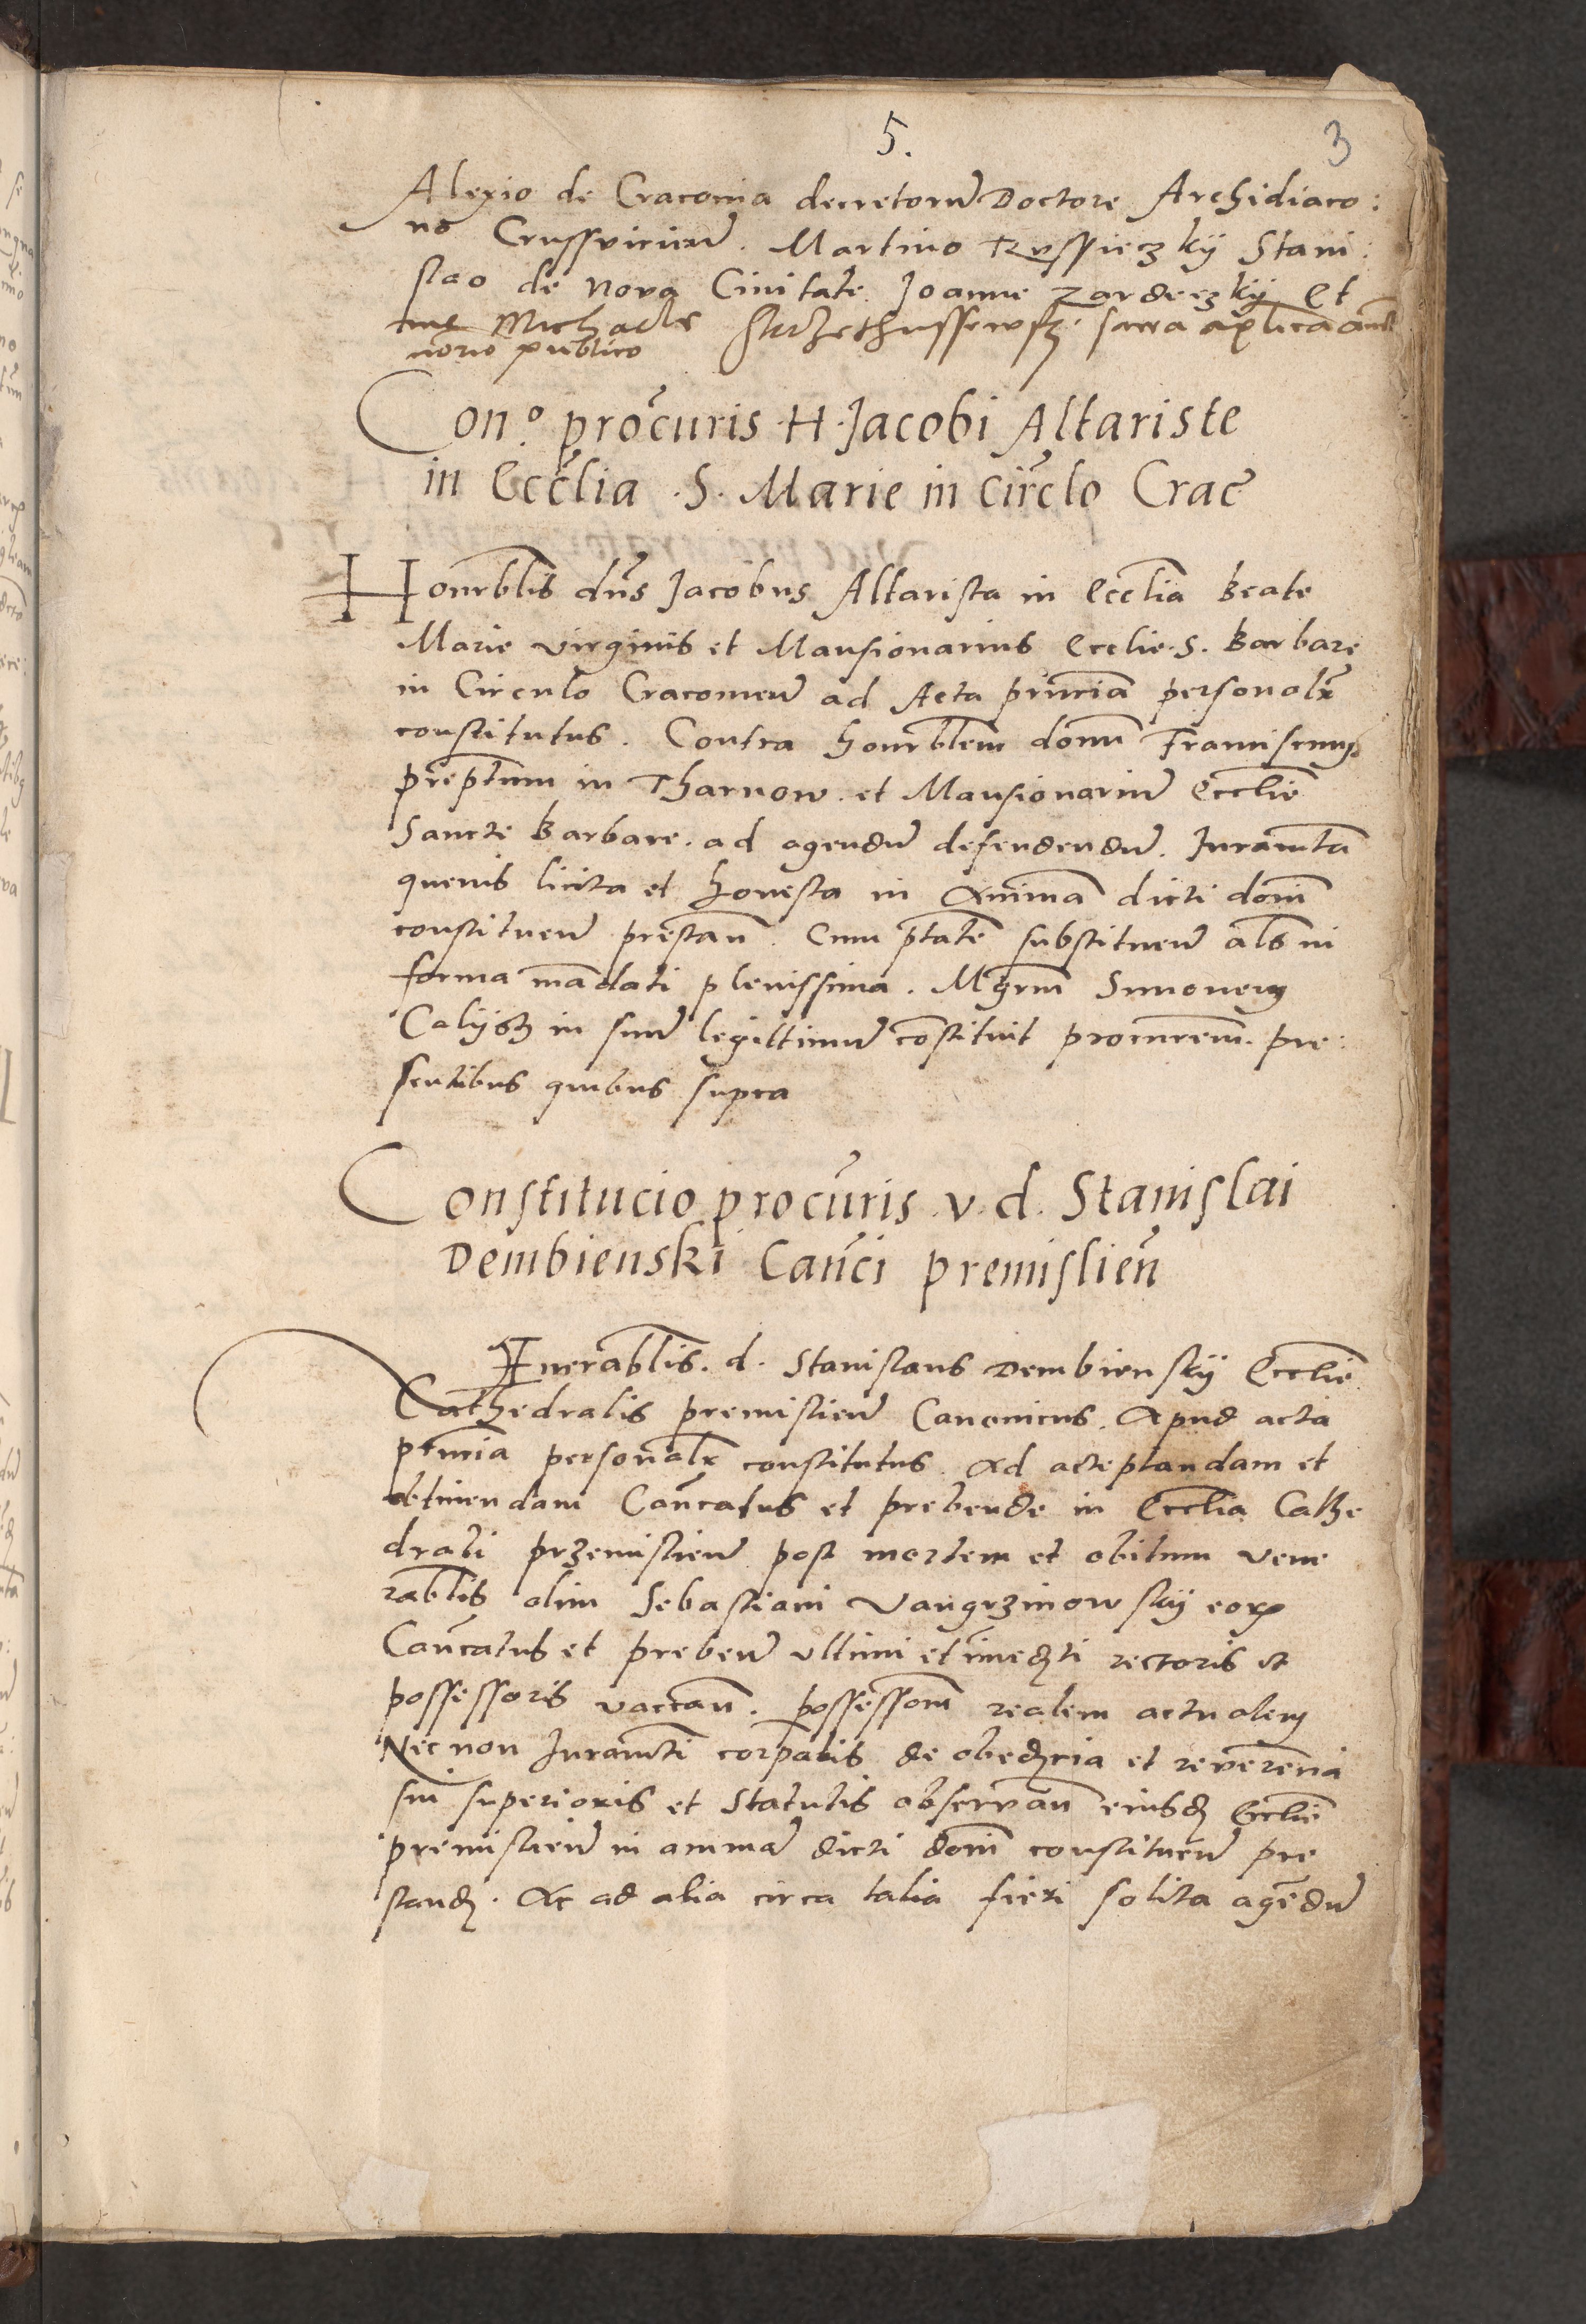 5.
3
Alexio de Craconia decretorũ Doctore Archidiaco:
no Crusvicieñ. Martino Ruspieczkÿ Stani:
slao de Nova Civitate Joanne zardeczkÿ Et
me Michaele sacra aplica auct
norio publico
Con.º procũris H. Jacobi Altariste
in Eccl̃ia .S. Marie in Circl̃o Crac̃
Honrablis dñs Jacobus Altarista in Ecclia Beate
Marie virginis et Mansionarius Ecclie S. Barbare
in Circulo Cracovieñ ad Acta prñcia personalr̃
constitutus. Contra honrablem domũ Franciscum
preptum in Tharnow et Mansionariũ Ecclie
Sancte Barbare. ad agendũ defendendũ. Juramta
quevis licita et honesta in Animã dicti domĩ
constitueñ prestañ. Cum ptãtẽ substitueñ als in
forma mãdati plenissima. Mgrũm Simonem
Calijsz in suũ legittimũ cõstituit procurem̃. pre:
sentibus quibus supra
Constitucio procũris v. d. Stanislai
Dembienski Cañci premislieñ
Venerablis. d. Stanislaus Dembienskÿ Ecclie
Cathedralis premislieñ Canonicus. Apud acta
prñcia personalr̃ constitutus. Ad acceptandam et
obtinendam Cañcatus et prebende in Ecclia Cathe
drali przemislieñ post mortem et obitum vene
rablis olim Sebastiani Vangrzinowskÿ eorꝝ
Cañcatus et prebeñ ultimi et im̃edti rectoris et
possessoris vaccañ. possessiom̃ realem actualem
Necnon Juramti corpalis de obedñcia et reverẽncia
sui superioris et Statutis observañ eiusd Ecclie
premislieñ in animã dicti domĩ constitueñ pre
stand. Ac ad alia circa talia fieri solita agẽdũ